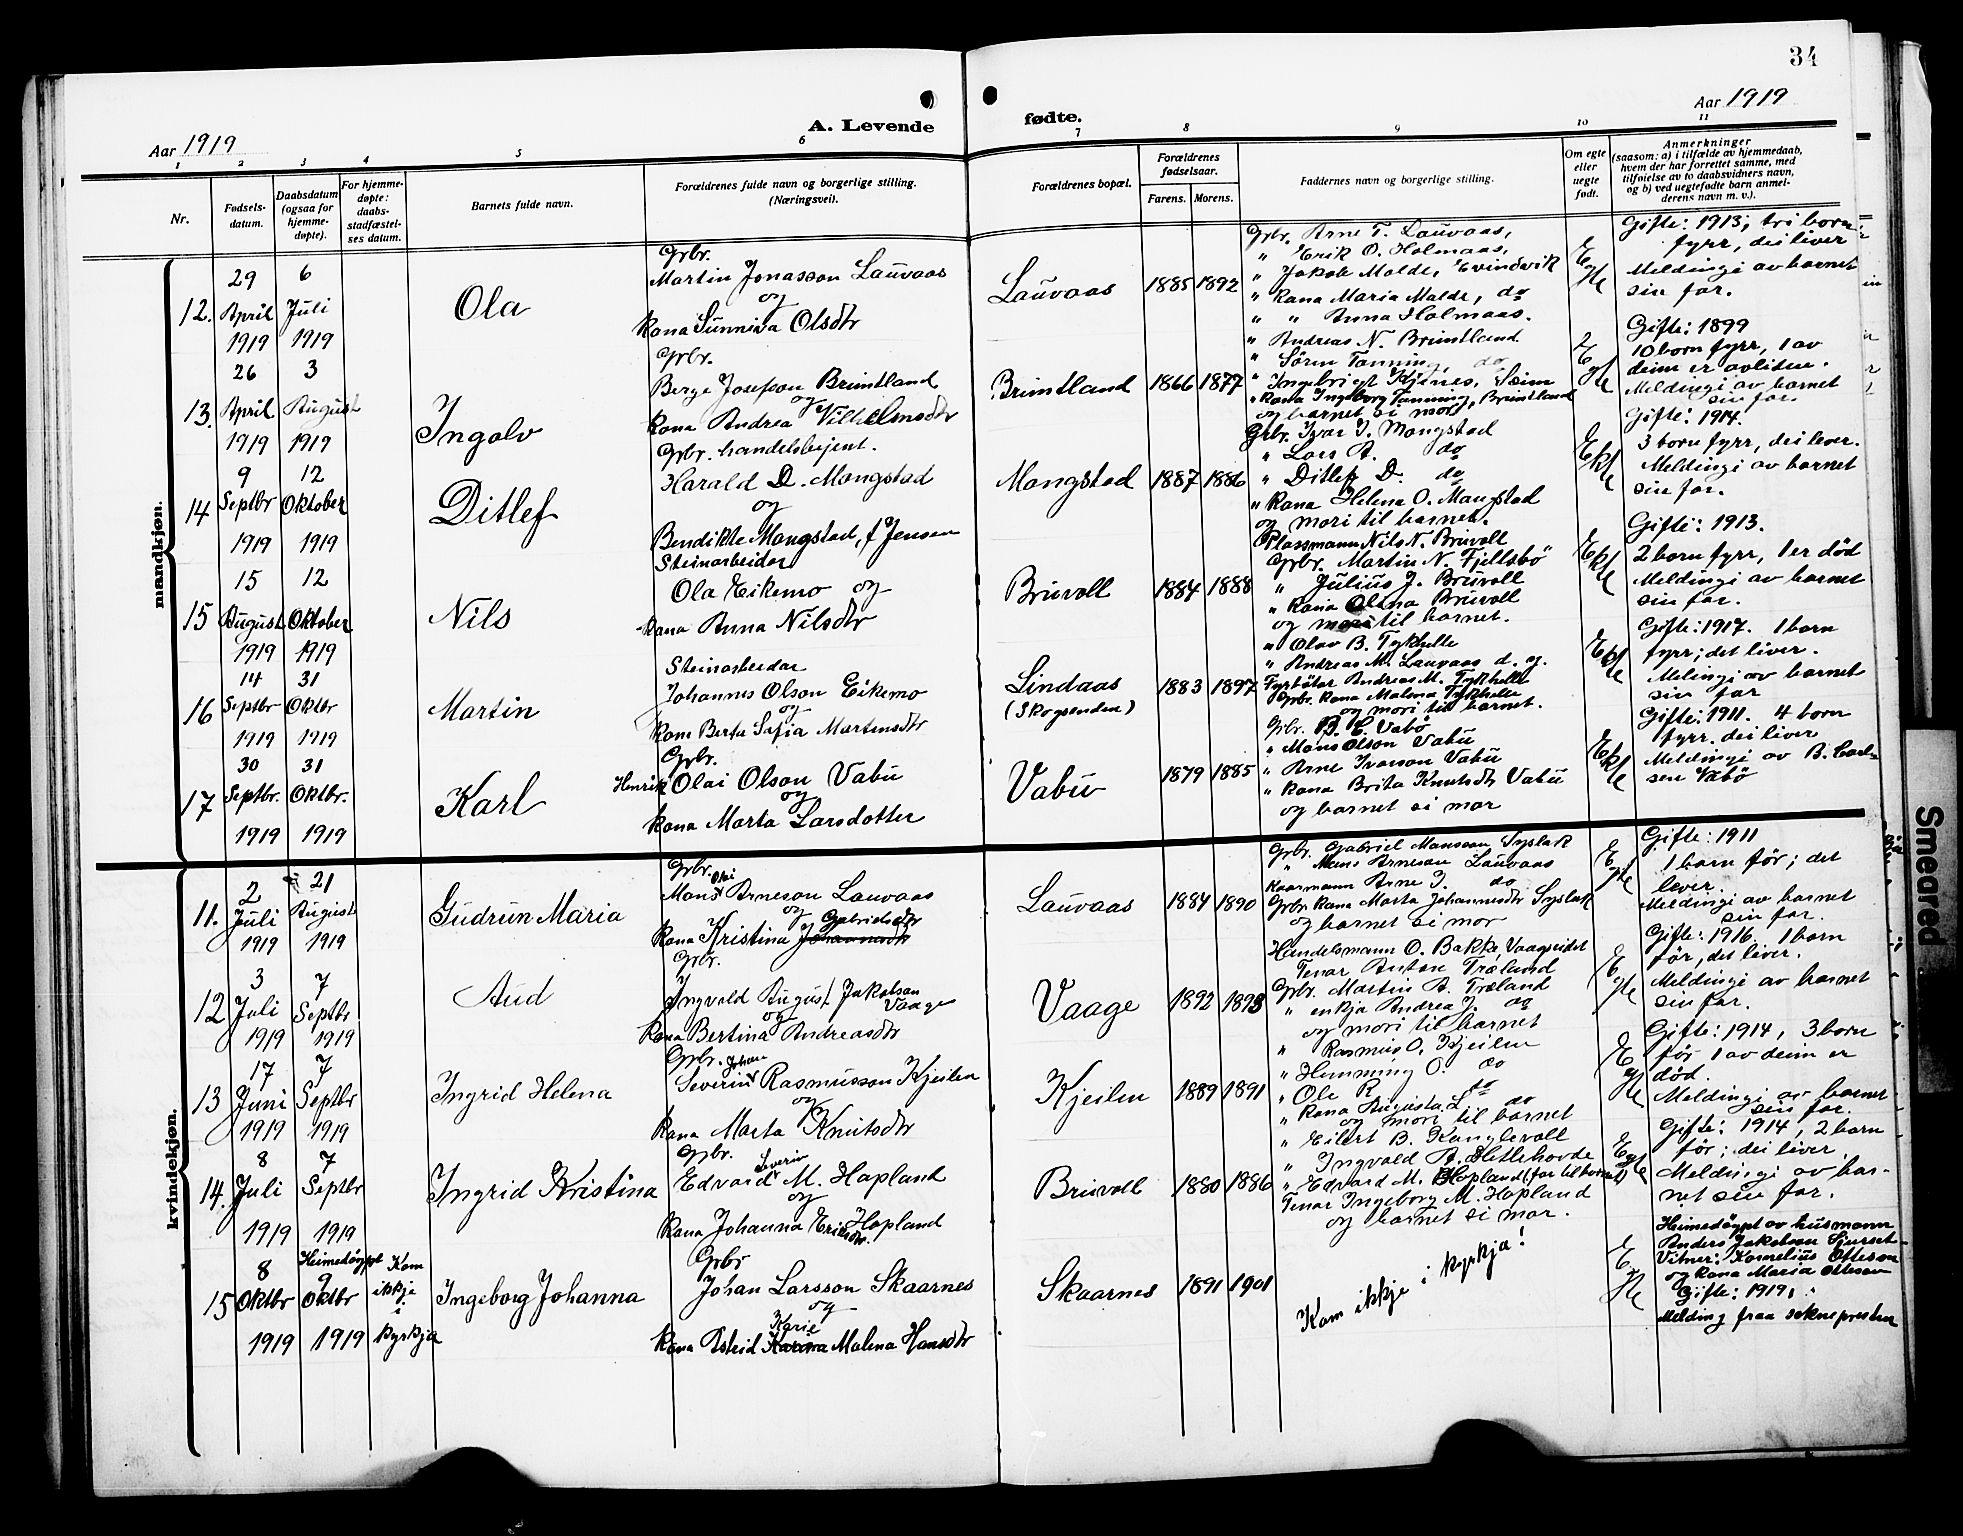 34
Aar 1919
A. Levende
fødte.
Aar 1919
1 2 3 4 5 6 7 8 9 10 11
Nr.
Fødsels-
datum.
Daabsdatum
(ogsaa for
hjemme-
døpte).
For hjemme-
døpte:
daabs-
stadfæstel-
ses datum.
Barnets fulde navn.
Forældrenes fulde navn og borgerlige stilling.
(Næringsvei).
Forældrenes bopæl.
Forældrenes
fødselsaar.
Farens. Morens.
Faddernes navn og borgerlige stilling.
Om egte
eller
uegte
født.
Anmerkninger
(saasom: a) i tilfælde av hjemmedaab,
hvem der har forrettet samme, med
tilføielse av to daabsvidners navn,
og b) ved uegtefødte barn anmel-
derens navn m. v.).
mandkjøn.
12.
29
April
1919
6
Juli
1919
Ola
Grbr.
Martin Jonasson Lauvaas
og
kona Sunniva Olsdtr
Lauvaas
1885 1892
Grbr. Arne T. Lauvaas,
" Erik O. Holmaas,
" Jakob Molde, Evindvik
" Kona Maria Molde, do
" " Anna Holmaas.
Egte
Gifte: 1913; tri born
fyrr, dei liver
Meldingi av barnet
sin far.
13.
26
April
1919
3
August
1919
Ingolv
Grbr.
Berge Josefson Brimtland
og
kona Andrea Vilhelmsdtr
Brimtland
1866 1877
" Andreas N. Brimtland
" Søren Tanning, do
" Ingebrigt Kjenes, Seim
" Kona Ingeborg Tanning, Brimtland
og barnet si mor
Egte
Gifte: 1899
10 born fyrr, 1 av
deim er avliten.
Meldingi av barnet
sin far.
14
9
Septbr
1919
12
Oktober
1919
Ditlef
Grbr. handelsbejent.
Harald D. Mongstad
og
Bendikte Mongstad, f Jensen
Mongstad
1887 1886
Grbr. Ivar I. Mongstad
" Lars A. do
" Ditlef D. do
" Kona Helena O. Mongstad
og mori til barnet.
Ekte
Gifte: 1914.
3 born fyrr, dei lever.
Meldingi av barnet
sin far.
15
15
August
1919
12
Oktober
1919
Nils
Steinarbeider
Ola Eikemo og
kona Anna Nilsdtr
Bruvoll
1884 1888
Plassmann Nils N. Bruvoll
Grbr. Martin N. Fjellsbö
" Julius J. Bruvoll
" Kona Olena Bruvoll
og mori til barnet.
Ekte
Gifte: 1913.
2 born fyrr, 1 er död
Meldingi av barnet
sin far.
16
14
Septbr
1919
31
Oktbr
1919
Martin
Steinarbeidar
Johannes Olson Eikemo
og
kona Berta Sofia Martinsdtr
Lindaas
(Skogsenden)
1883 1897
" Olav B. Tykhelle
" Andreas M. Lauvaas d. y.
Fyrbötar Andreas M. Tykhelle
Grbr. kona Malena Tykhelle
og mori til barnet.
Ekte
Gifte: 1917. 1 born
fyrr; det liver.
Melingi av barnet
sin far
17
30
Septbr.
1919
31
Oktbr.
1919
Karl
Grbr.
Henrik Olai Olson Vabu
og
kona Marta Larsdotter
Vabu
1879 1885
Grbr. B. C. Vabö
" Mons Olson Vabu
" Arne Ivarson Vabu
" Kona Brita Knutsdtr Vabu
og barnet si mor
Ekte
Gifte: 1911. 4 born
fyrr. dei liver
Meldingi av B. Carl-
sen Vabö
kvindekjøn.
11.
2
Juli
1919
21
August
1919
Gudrun Maria
Grbr.
Olai
Mons Arneson Lauvaas
og Gabrielsdtr
kona Kristina Johannesdtr
Lauvaas
1884 1890
Grbr. Gabriel Monsson Syslak
" Mons Arneson Lauvaas
Kaarmann Arne J. do
Grbr kona Marta Johannesdtr Syslak
og barnet si mor
Egte
Gifte: 1911
1 born för; det
lever.
Meldingi av barnet
sin far.
12
3
Juli
1919
7
Septbr
1919
Aud
Grbr.
Ingvald August Jakobson
Vaage
og
Kona Bertina Andreasdtr
Vaage
1892 1893
Handelsmann O. Bakke, Vaagseidet
Tenar Anton Træland
Grbr. Martin A. Træland
" enkja Andrea J. do
og mori til barnet
Egte
Gifte: 1916. 1 born
för, det liver.
Meldingi av barnet
sin far.
13
17
Juni
1919
7
Septbr
1919
Ingrid Helena
Grbr. Johan
Severin Rasmusson Kjeilen
og
Kona Marta Knutsdtr
Kjeilen
1889 1891
" Rasmus O. Kjeilen
" Hemming O. do
" Ole R. do
" Kona Augusta L. do
og mori til barnet
Egte
Gifte: 1914, 3 born
för 1 av deim er
död.
Meldingi av barnet
sin far.
14.
8
Juli
1919
7
Septbr
1919
Ingrid Kristina
Grbr.
Severin
Edvard M. Hopland
og
Kona Johanna Eriksdtr. Hopland
Bruvoll
1880 1886
" Eilert B. Kanglevoll
" Ingvald A. Hetlehovde
" Edvard M. Hopland (far til barnet)
Tenar Ingeborg M. Hopland
og barnet si mor.
Egte
Gifte: 1914, 2 born
för; dei liver.
Meldingi av bar-
net sin far.
15
8
Oktbr
1919
Heimedöypt
9
Oktbr
1919
Kom
ikkje
i
kyrkja
Ingeborg Johanna
Grbr
Johan Larsson Skaarnes
og
Karie
kona Astrid Karina Malena Hansdtr
Skaarnes
1891 1901
Kom ikkje i kyrkja!
Egte
Heimedöypt av husmann
Anders Jakobson Sjurset
Vitner: Kornelius Otteson
og Kona Maria Otteson
Gifte: 1919;
Melding fraa sokneprestен
Smeared